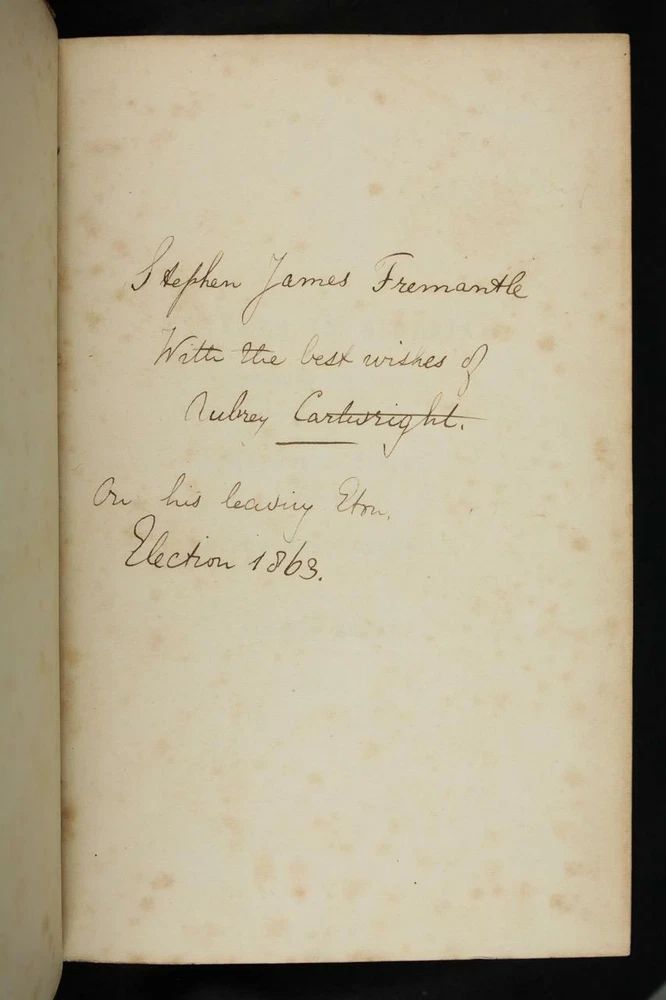 Stephen James Fremantle
With the best wishes of
Aubrey Cartwright.
On his leaving Eton.
Election 1863.